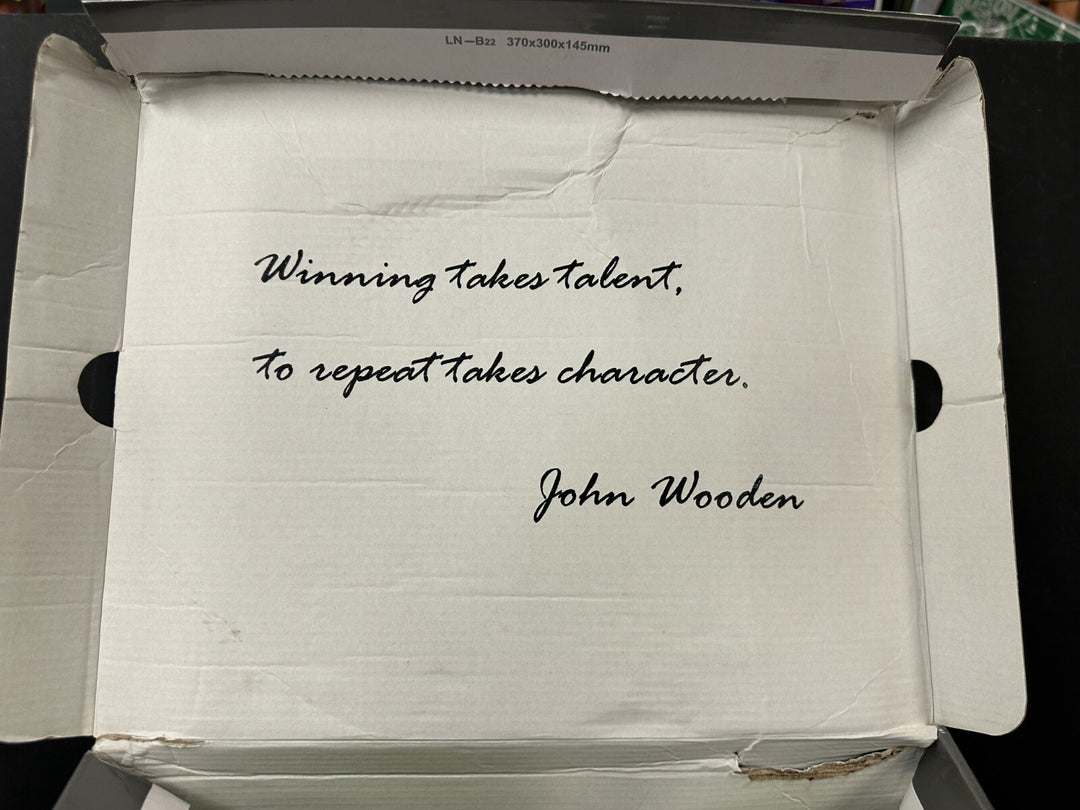 LN—B22 370x300x145mm
Winning takes talent,
to repeat takes character.
John Wooden